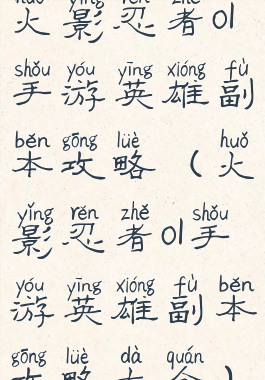 huǒ yǐng rěn zhě
火 影 忍 者 01
shǒu yóu yīng xióng fù
手 游 英 雄 副
běn gōng lüè huǒ
本 攻 略 ( 火
yǐng rěn zhě shǒu
影 忍 者 01 手
yóu yīng xióng fù běn
游 英 雄 副 本
gōng lüè dà quán
攻 略 大 全 )